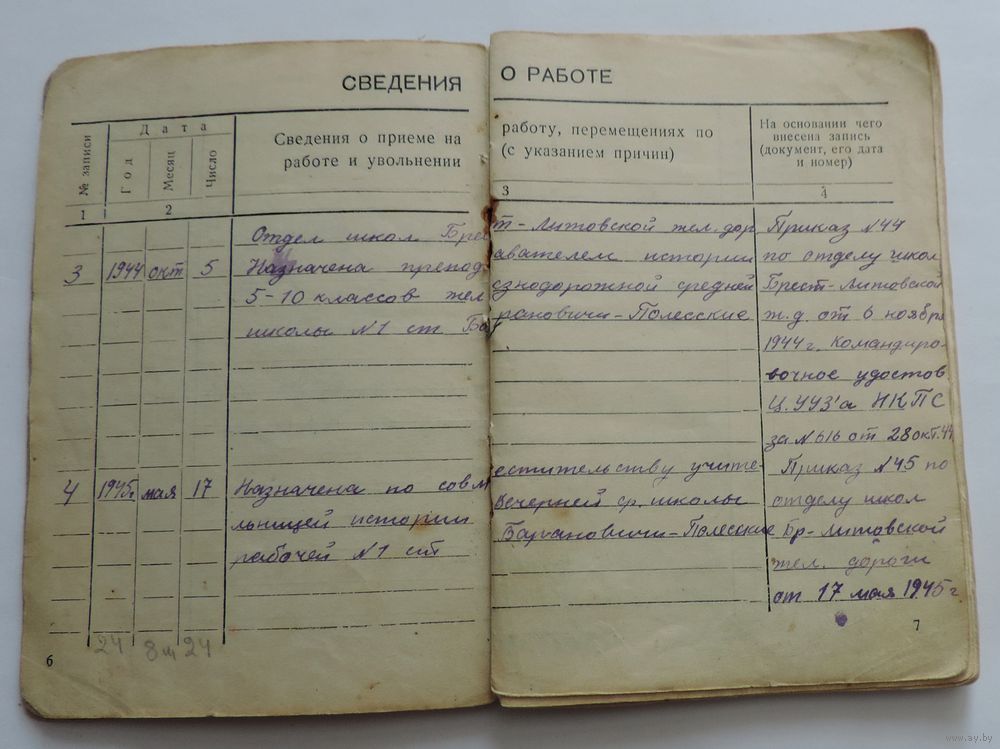 СВЕДЕНИЯ О РАБОТЕ
№ записи
Дата
Год
Месяц
Число
Сведения о приеме на работу, перемещениях по
работе и увольнении (с указанием причин)
На основании чего
внесена запись
(документ, его дата
и номер)
1 2 3 4
Отдел школ Брест-Литовской жел. дор.
3 1944 окт 5 Назначена преподавателем истории
5-10 классов железнодорожной средней
школы N1 ст. Барановичи-Полесские
Приказ N44
по отделу школ
Брест-Литовской
ж.д. от 6 ноября
1944 г. Командиро-
вочное удостов.
Ц.УУЗ'а НКПС
за N616 от 28 окт. 44
4 1945г. мая 17 Назначена по совместительству учите-
льницей истории Вечерней ср. школы
рабочей N1 ст Барановичи-Полесские
Приказ N45 по
отделу школ
Бр-Литовской
жел. дороги
от 17 мая 1945 г
24 8м 24
6
7
www.ay.by